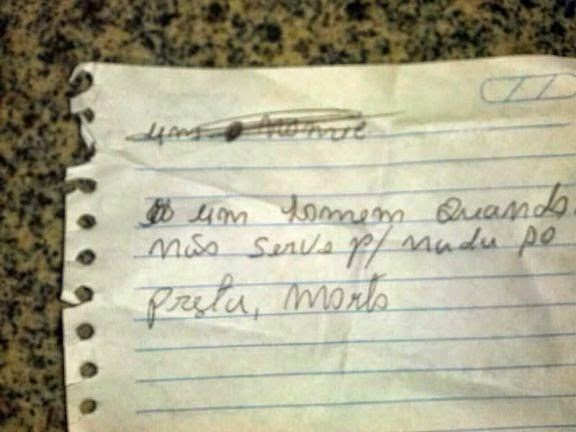 um homem
um homem quando
não serve p/ nada so
presta, morto